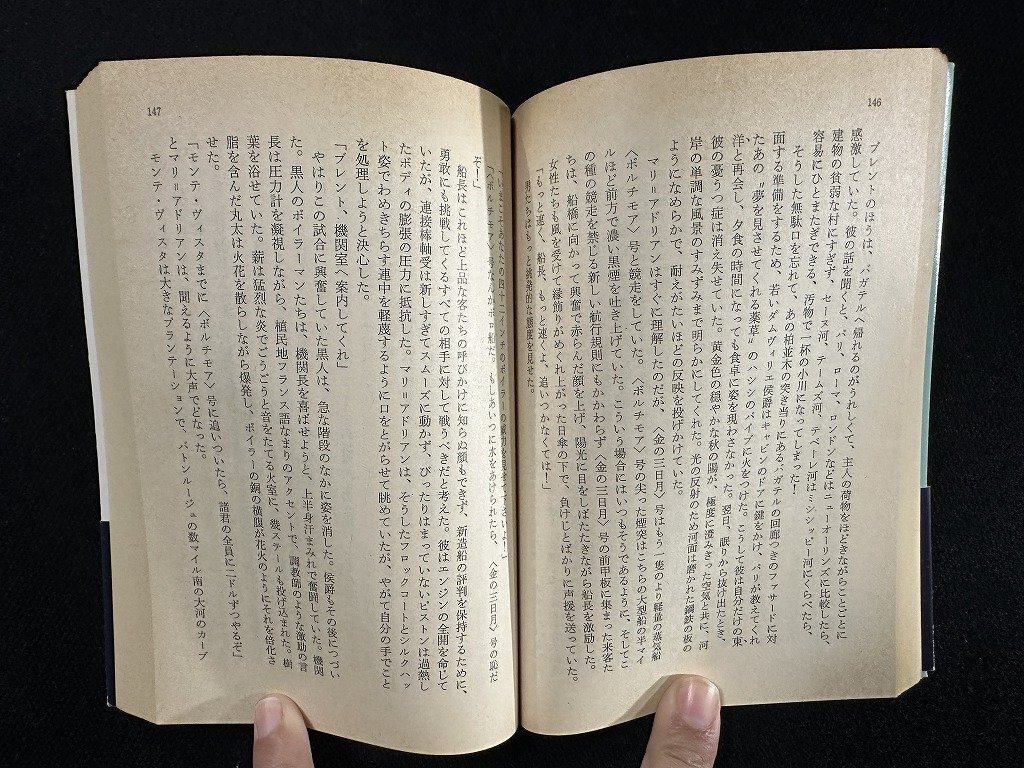 146
ブレントのほうは、バガテルへ帰れるのがうれしくて、主人の荷物をほどきながらことごとに
感激していた。彼の話を聞くと、パリ、ローマ、ロンドンなどはニューオーリンズに比較したら、
建物の貧弱な村にすぎず、セーヌ河、テームズ河、テベーレ河はミシシッピー河にくらべたら、
容易にひとまたぎできる、汚物で一杯の小川になってしまった!
そうした無駄口を忘れて、あの柏並木の突き当りにあるバガテルの回廊つきのファサードに対
面する準備をするため、若いダムヴィリエ侯爵はキャビンのドアに鍵をかけ、パリが教えてくれ
たあの〝夢を見させてくれる薬草〟のハシシのパイプに火をつけた。こうして彼は自分だけの東
洋と再会し、夕食の時間になっても食卓に姿を現わさなかった。翌日、眠りから抜け出たとき、
彼の憂うつ症は消え失せていた。黄金色の穏やかな秋の陽が、極度に澄みきった空気と共に、河
岸の単調な風景のすみずみまで明らかにしてくれた。光の反射のため河面は磨かれた鋼鉄の板の
ようになめらかで、耐えがたいほどの反映を投げかけていた。
マリ=アドリアンはすぐに理解したのだが、〈金の三日月〉号はもう一隻のより軽量の蒸気船
〈ボルチモア〉号と競走をしていた。〈ボルチモア〉号の尖った煙突はこちらの大型船の半マイ
ルほど前方で濃い黒煙を吐き上げていた。こういう場合にはいつもそうであるように、そしてこ
の種の競走を禁じる新しい航行規則にもかかわらず〈金の三日月〉号の前甲板に集まった乗客た
ちは、船橋に向かって興奮で赤らんだ顔を上げ、陽光に目をしばたたきながら船長を激励した。
女性たちも風を受けて縁飾りがめくれ上がった日傘の下で、負けじとばかりに声援を送っていた。
「もっと速く、船長、もっと速くよ、追いつかなくては!」
男たちはもっと挑発的な態度を見せた。
147
〈ボルチモア〉号なんかボロ船だ。もしあいつに水をあけられたら、〈金の三日月〉号の恥だ
ぞ!」
船長はこれほど上品な客たちの呼びかけに知らぬ顔もできず、新造船の評判を保持するために、
勇敢にも挑戦してくるすべての相手に対して戦うべきだと考えた。彼はエンジンの全開を命じて
いたが、連接棒軸受は新しすぎてスムーズに動かず、ぴったりはまっていないピストンは過熱し
たボディの膨張の圧力に抵抗した。マリ=アドリアンは、そうしたフロックコートとシルクハッ
ト姿でわめきちらす連中を軽蔑するように口をとがらせて眺めていたが、やがて自分の手でこと
を処理しようと決心した。
「ブレント、機関室へ案内してくれ」
やはりこの試合に興奮していた黒人は、急な階段のなかに姿を消した。侯爵もその後につづい
た。黒人のボイラーマンたちは、機関長を喜ばせようと、上半身汗まみれで奮闘していた。機関
長は圧力計を凝視しながら、植民地フランス語なまりのアクセントで、調教師のような激励の言
葉を浴せていた。薪は猛烈な炎でごうごうと音をたてる火室に、幾ステールも投げ込まれた。樹
脂を含んだ丸太は火花を散らしながら爆発し、ボイラーの鋼の横腹が花火のようにそれを倍化さ
せた。
「モンテ・ヴィスタまでに〈ボルチモア〉号に追いついたら、諸君の全員に二ドルずつやるぞ」
とマリ=アドリアンは、聞えるように大声でどなった。
モンテ・ヴィスタは大きなプランテーションで、バトンルージュの数マイル南の大河のカーブ